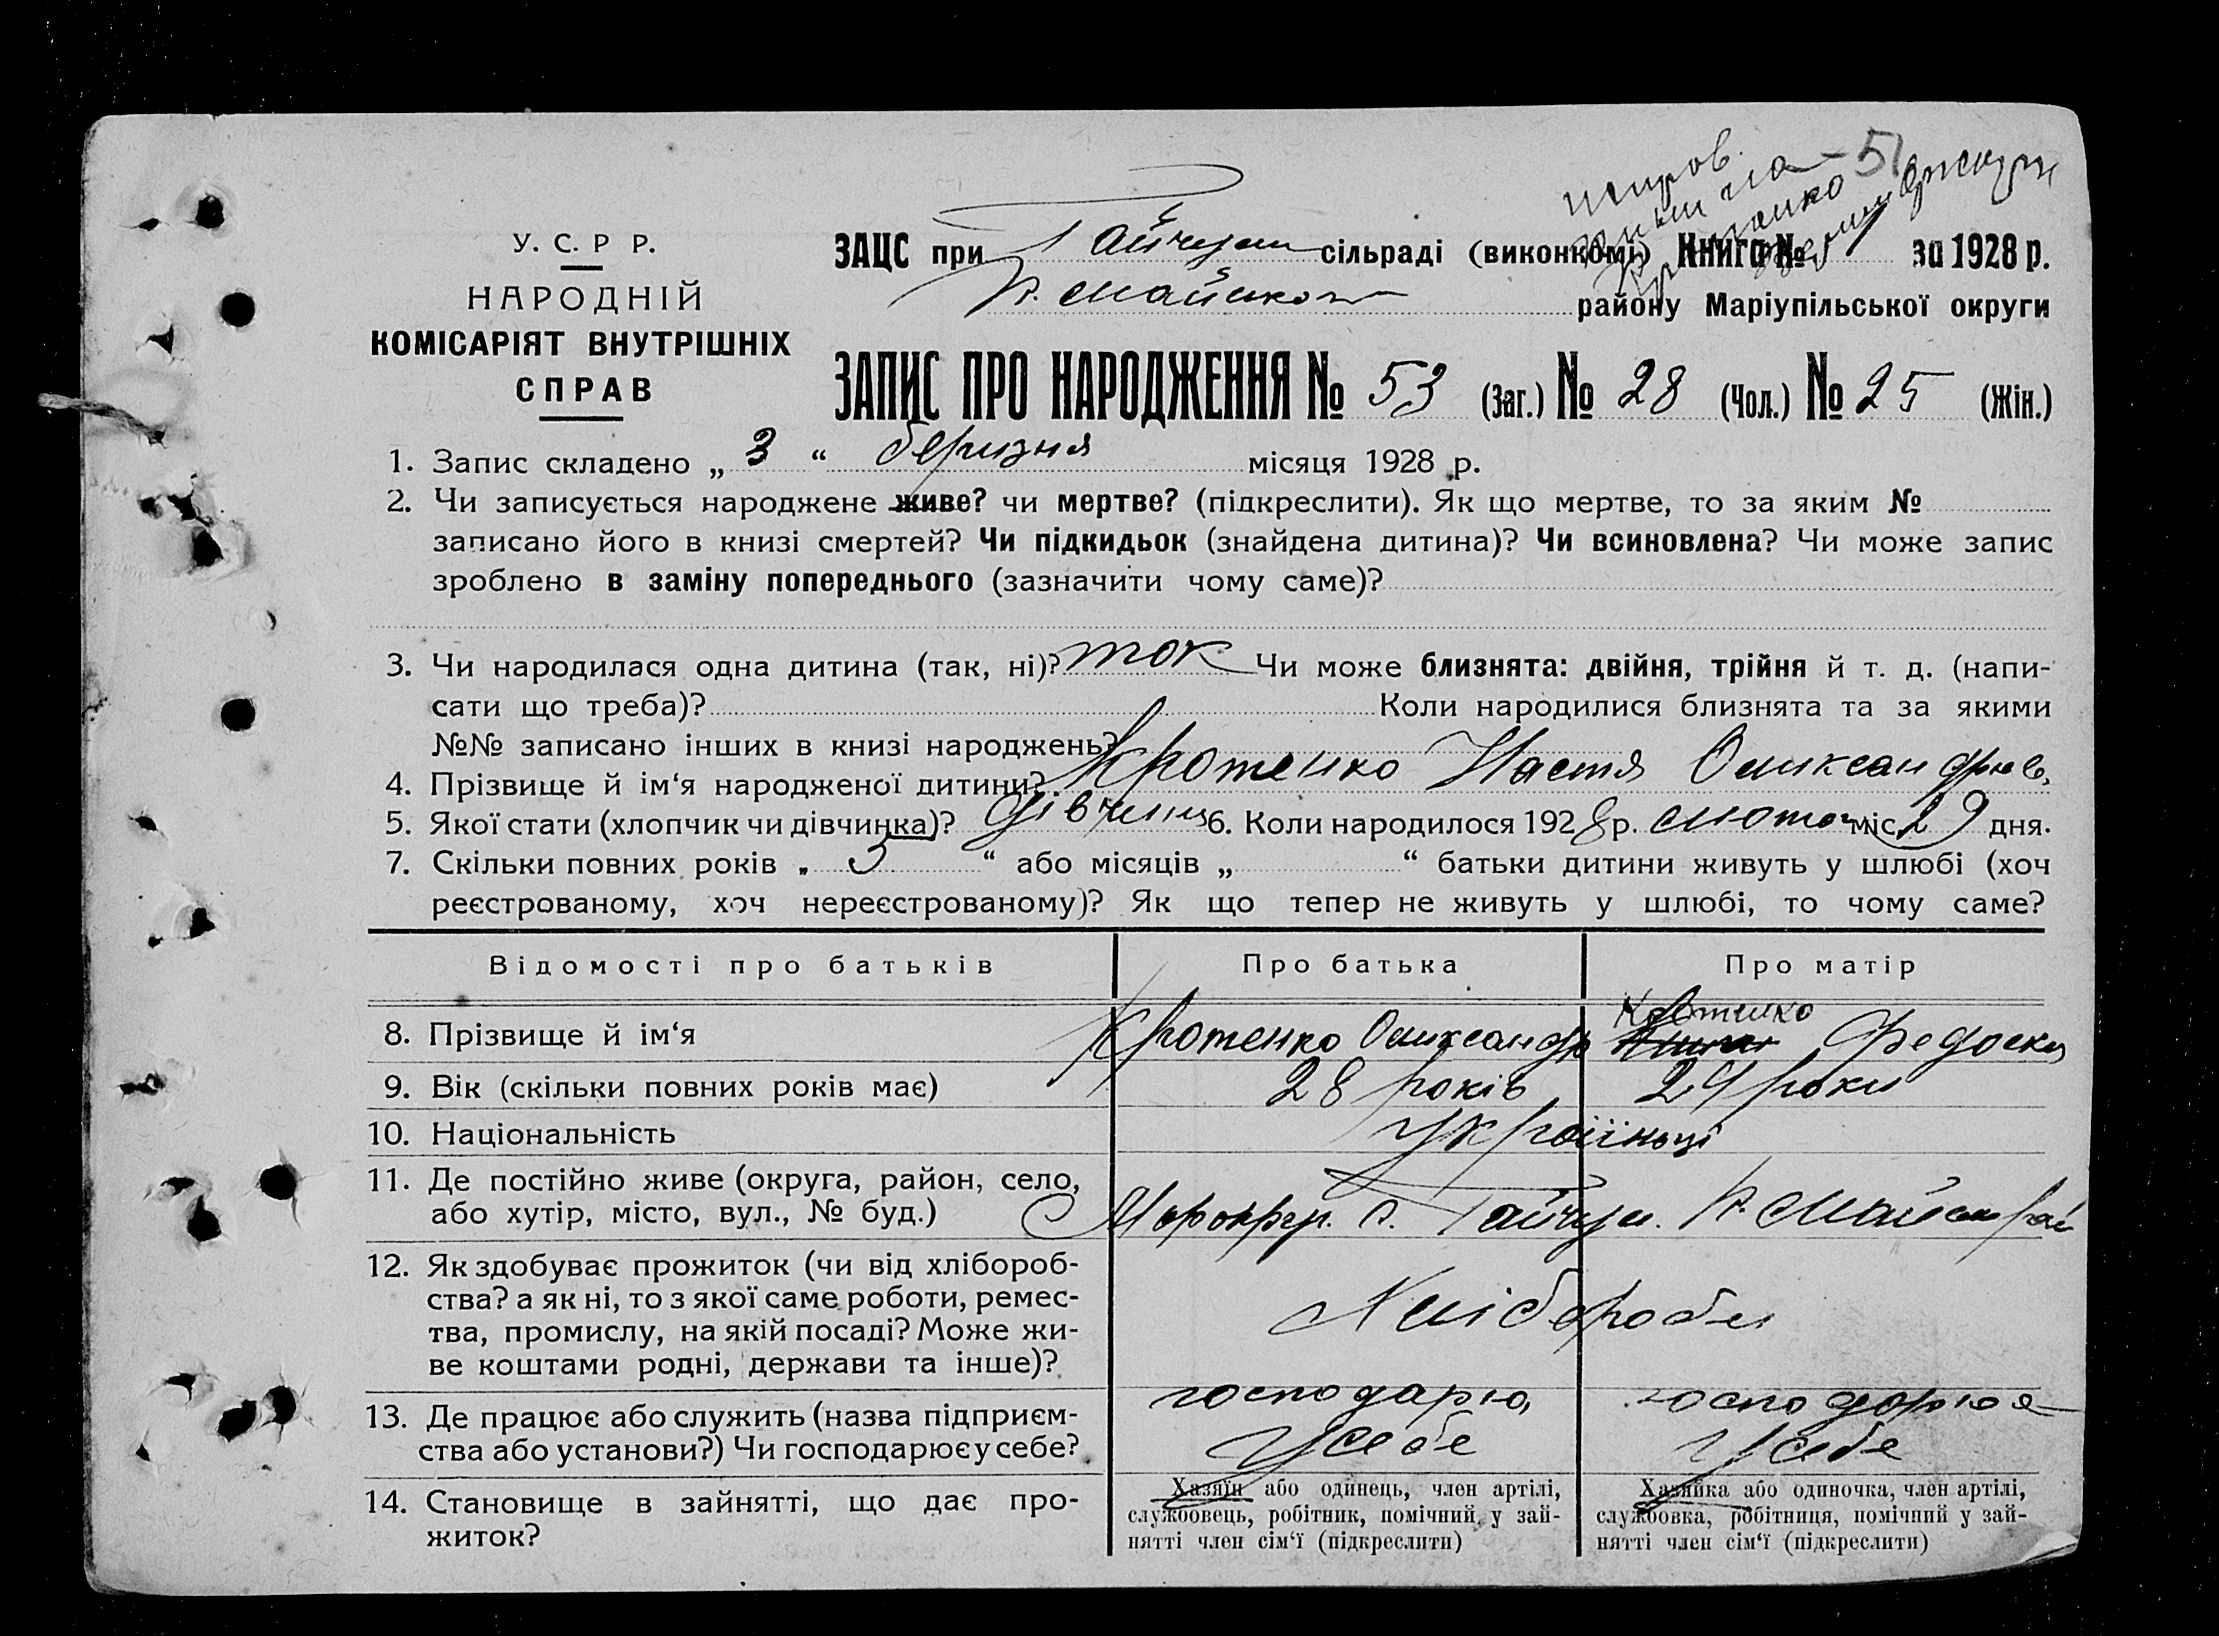 51
У. С. Р Р.
НАРОДНІЙ
КОМІСАРІЯТ ВНУТРІШНІХ
СПРАВ
ЗАЦС при Гайчул сільраді (виконкомі) Книга № 1 за 1928 р.
району Маріупільської округи
ЗАПИС ПРО НАРОДЖЕННЯ № 53 (Заг.) № 28 (Чол.) № 25 (Жін.)
1. Запис складено „ 3 “ березня місяця 1928 р.
2. Чи записується народжене живе? чи мертве? (підкреслити). Як що мертве, то за яким №
записано його в книзі смертей? Чи підкидьок (знайдена дитина)? Чи всиновлена? Чи може запис
зроблено в заміну попереднього (зазначити чому саме)?
3. Чи народилася одна дитина (так, ні)? так Чи може близнята: двійня, трійня й т. д. (напи-
сати що треба)? Коли народилися близнята та за якими
№№ записано інших в книзі народжень?
4. Прізвище й ім‘я народженої дитини? Кротенко Настя Олександрів.
5. Якої стати (хлопчик чи дівчинка)? дівчина 6. Коли народилося 1928 р. лютого міс. 29 дня.
7. Скільки повних років „ 3 “ або місяців „ “ батьки дитини живуть у шлюбі (хоч
реєстрованому, хоч нереєстрованому)? Як що тепер не живуть у шлюбі, то чому саме?
Відомості про батьків Про батька Про матір
8. Прізвище й ім‘я Кротенко Олександр Кротенко Федоска
9. Вік (скільки повних років має) 28 років 24 роки
10. Національність Українці
11. Де постійно живе (округа, район, село,
або хутір, місто, вул., № буд.) с. Гайчул
12. Як здобуває прожиток (чи від хлібороб-
ства? а як ні, то з якої саме роботи, ремес-
тва, промислу, на якій посаді? Може жи-
ве коштами родні, держави та інше)?
Хлібороби
13. Де працює або служить (назва підприєм-
ства або установи?) Чи господарює у себе?
господарю у себе
господарює у себе
14. Становище в зайнятті, що дає про-
житок?
Хазяїн або одинець, член артілі,
службовець, робітник, помічний у зай-
нятті член сім‘ї (підкреслити)
Хазяйка або одиночка, член артілі,
службовка, робітниця, помічний у зай-
нятті член сім‘ї (підкреслити)